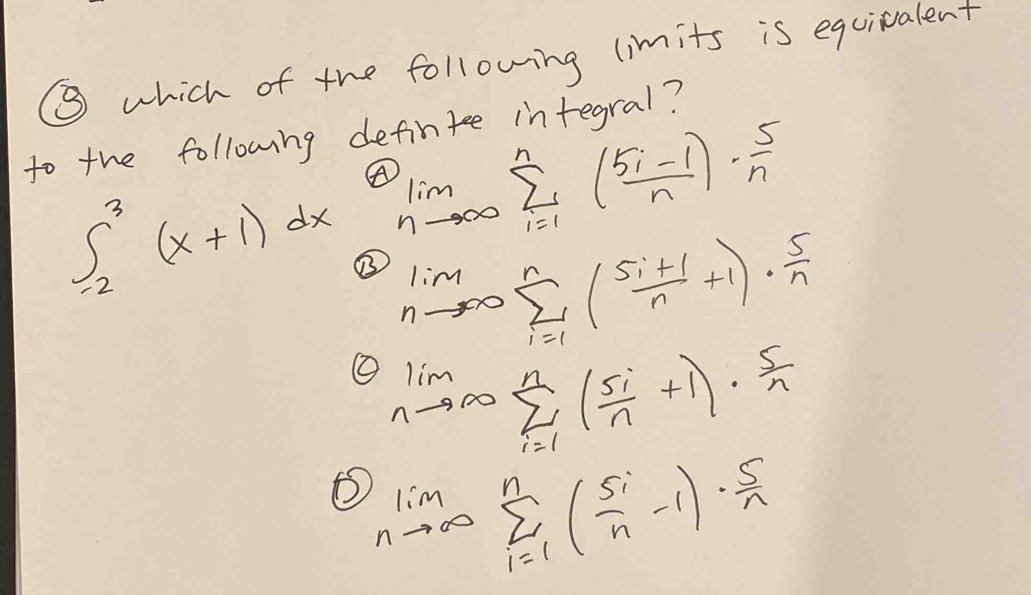 ⑧ which of the following limits is equivalent
to the following definite integral?
∫_{-2}^{3} (x+1) dx
Ⓐ lim_{n→∞} ∑_{i=1}^{n} ((5i-1)/n) · 5/n
Ⓑ lim_{n→∞} ∑_{i=1}^{n} ((5i+1)/n +1) · 5/n
Ⓒ lim_{n→∞} ∑_{i=1}^{n} (5i/n +1) · 5/n
Ⓓ lim_{n→∞} ∑_{i=1}^{n} (5i/n -1) · 5/n